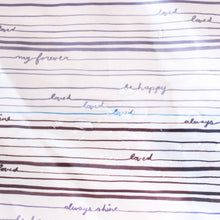 loved
loved
loved
my forever
be happy
loved
loved
loved
always
shine
loved
loved
always shine